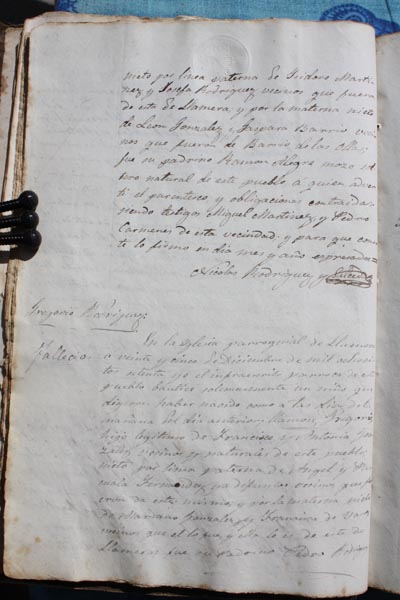 nieto por linea paterna de Isidoro Marti
nez y Josefa Rodriguez vecinos que fueron
de esta de Llamera, y por la materna nieto
de Leon Gonzalez y Gaspara Barrio veci
nos que fueron de Barrio de las Ollas,
fue su padrino Ramon Alegre mozo sol
tero natural de este pueblo á quien adver
tí el parentesco y obligaciones contraidas,
siendo testigos Miguel Martinez, y Pedro
Carmenes de esta vecindad, y para que cons
te lo firmo en dia mes y año expresados
Nicolas Rodriguez y
Gregorio Rodriguez
Fallecio
En la Iglesia parroquial de Llamera
a veinte y cinco de Diciembre de mil ochocien
tos setenta yo el infraescrito parroco de este
pueblo bautice solemnemente un niño que
dijeron haber nacido como a las diez de la
mañana del dia anterior, llamose Gregorio
hijo legitimo de Francisco y Antonia Gon
zalez, vecinos y naturales de este pueblo,
nieto por linea paterna de Angel y
Fernandez, ya difuntos vecinos que fu
eron de esta misma, y por la materna nieto
de Mariano Gonzalez, y Francisca de
vecinos que el lo fue, y ella lo es de esta de
Llamera fue su padrino Pedro